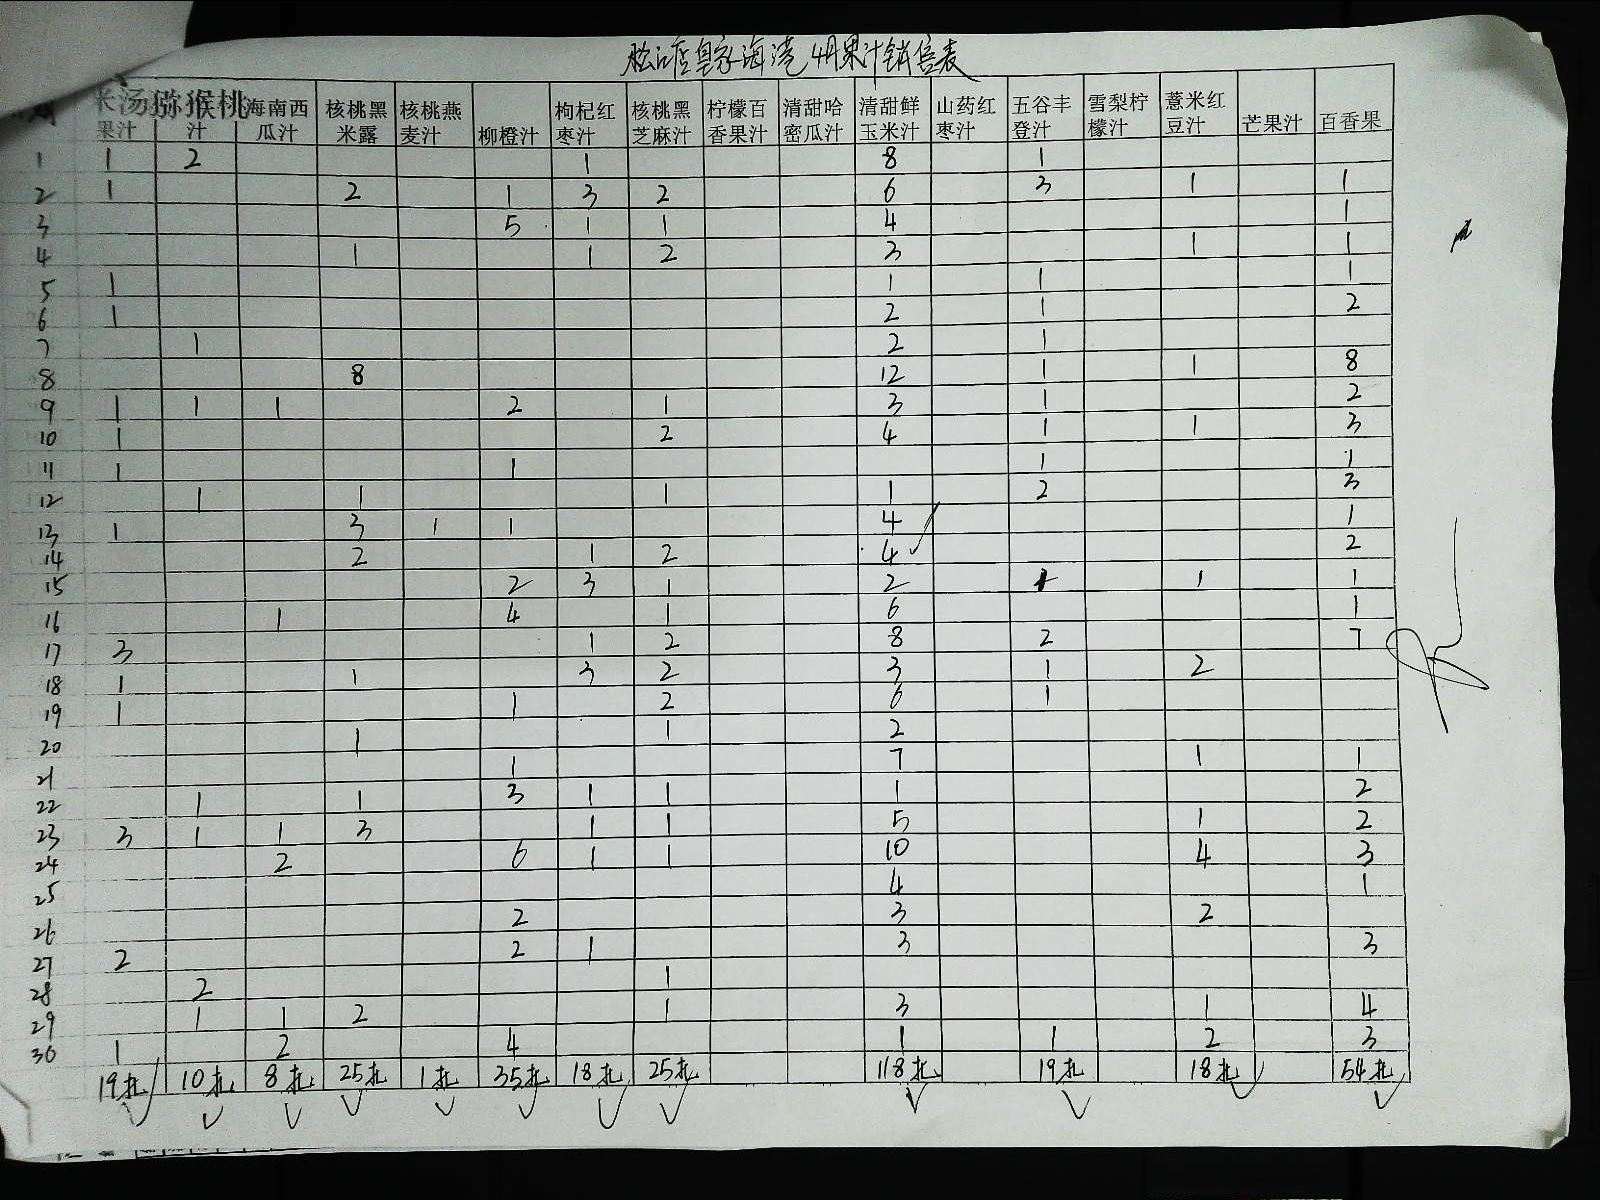 皇家海湾4月果汁销售表
米汤 猕猴桃 海南西 核桃黑 核桃燕 枸杞红 核桃黑 柠檬百 清甜哈 清甜鲜 山药红 五谷丰 雪梨柠 薏米红
果汁 汁 瓜汁 米露 麦汁 柳橙汁 枣汁 芝麻汁 香果汁 密瓜汁 玉米汁 枣汁 登汁 檬汁 豆汁 芒果汁 百香果
1 1 2 1 8 1
2 1 2 1 3 2 6 3 1 1
3 5 1 1 4 1
4 1 1 2 3 1 1
5 1 1 1 1
6 1 2 1 2
7 1 2 1
8 8 12 1 1 8
9 1 1 1 2 1 3 1 2
10 1 2 4 1 1 3
11 1 1 1 1
12 1 1 1 1 2 3
13 1 3 1 1 4 1
14 2 1 2 4 2
15 2 3 1 2 1 1 1
16 1 4 1 6 1
17 3 1 2 8 2 7
18 1 1 3 2 3 1 2
19 1 1 2 6 1
20 1 1 2
21 1 7 1 1
22 1 1 3 1 1 1 2
23 3 1 1 3 1 1 5 1 2
24 2 6 1 1 10 4 3
25 4 1
26 2 3 2
27 2 2 1 3 3
28 2 1
29 1 1 2 1 3 1 4
30 1 2 4 1 1 2 3
19扎 10扎 8扎 25扎 1扎 35扎 18扎 25扎 118扎 19扎 18扎 54扎